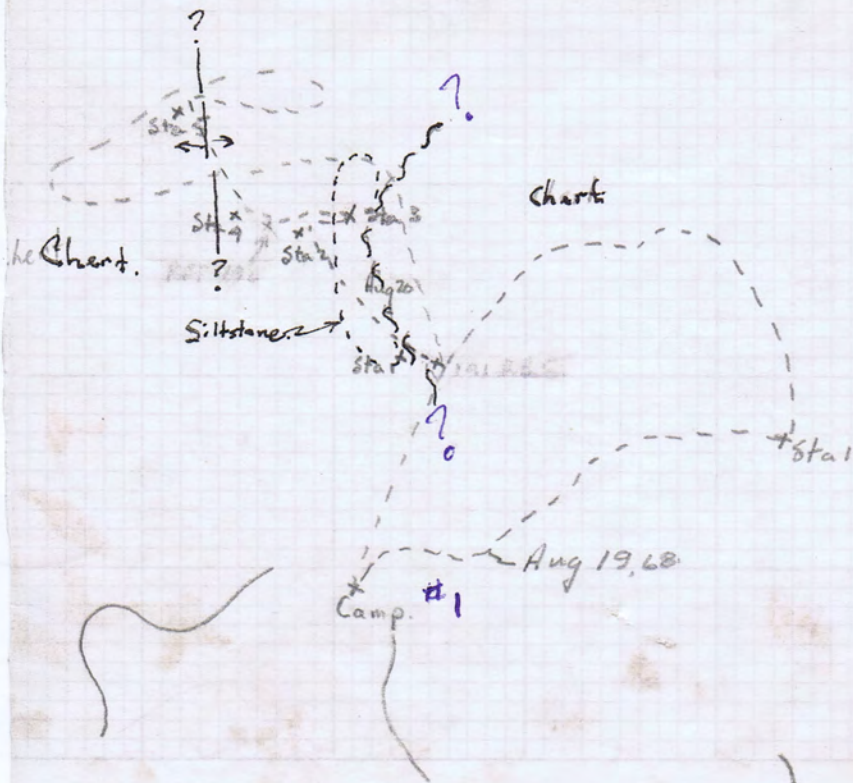 ?
?
Sta 5
Chert
Sta 3
Sta 4
Sta 2
Chert.
?
Aug 20
Siltstone
Sta 1
?
Sta 1
Aug 19, 68
Camp. #1